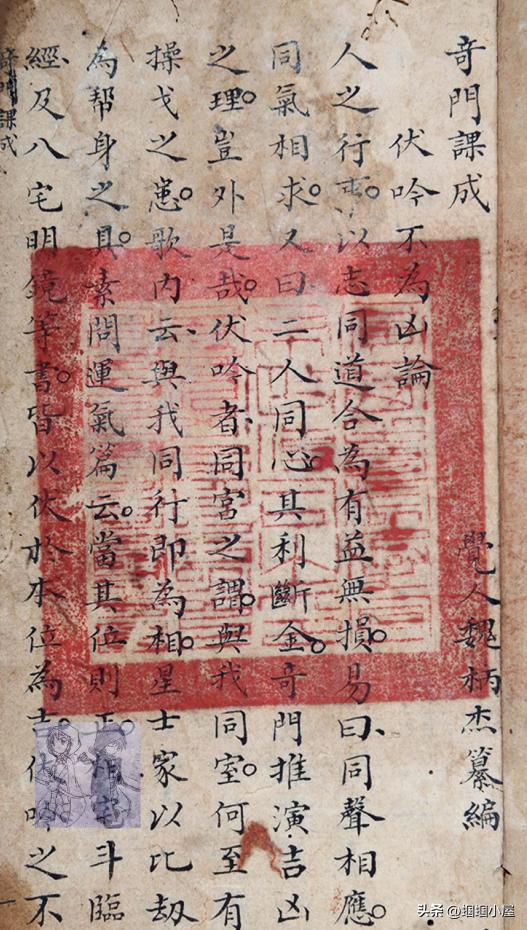 奇門課成
覺人魏柄杰纂編
伏吟不為凶論
人之行事。以志同道合為有益無損。易曰、同聲相應。
同氣相求。又曰二人同心。其利斷金。奇門推演吉凶
之理。豈外是哉。伏吟者、同宮之謂。與我同室。何至有
操戈之患。歌內云、與我同行即為相。星士家以比劫
為帮身之具。素問運氣篇云。當其位則正。相宅斗臨
經、及八宅明鏡等書。皆以伏於本位為吉。伏吟之不
奇門課成
头条 @蝈蝈小屋